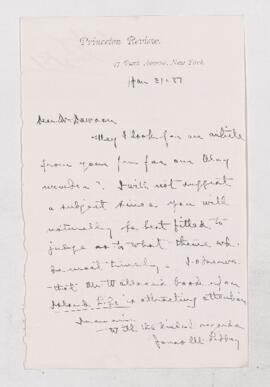 Princeton Review.
Park Avenue, New York
Jan 31.
Dear Dr Dawson
May I look for an article
from your pen for our May
number? I will not suggest
a subject since you will
naturally be best fitted to
judge as to what theme wd.
be most timely. I observe
that Mr Wallace's book upon
Island Life is attracting attention
With the kindest regards